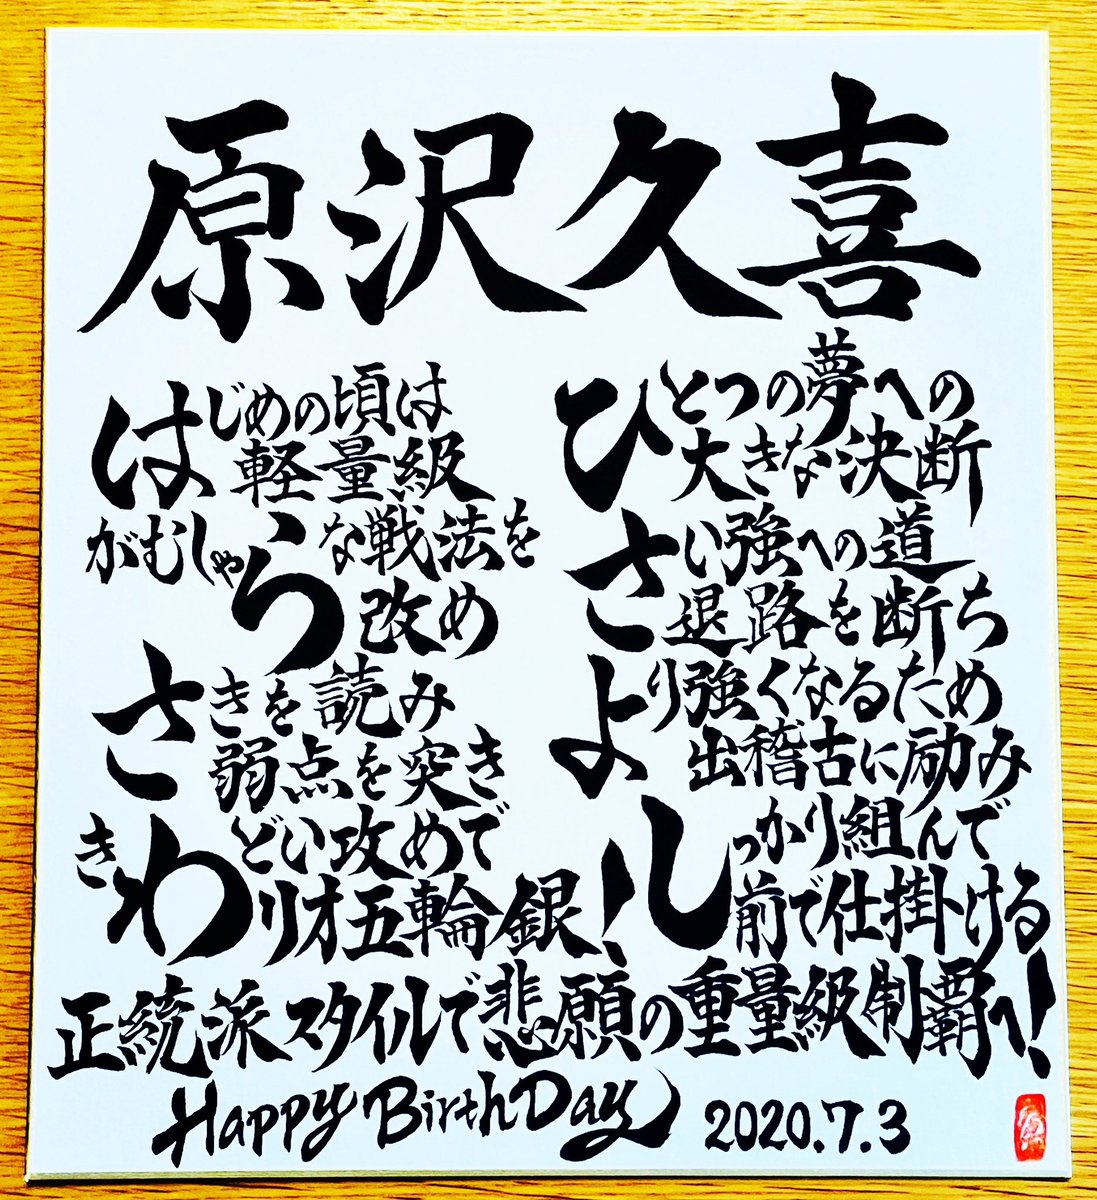 原沢久喜
はじめの頃は
軽量級
がむしゃらな戦法を
改め
さきを読み
弱点を突き
きわどい攻めで
リオ五輪銀!
ひとつの夢への
大きな決断
さい強への道
退路を断ち
より強くなるため
出稽古に励み
しっかり組んで
前で仕掛ける
正統派スタイルで悲願の重量級制覇へ!
Happy BirthDay 2020.7.3